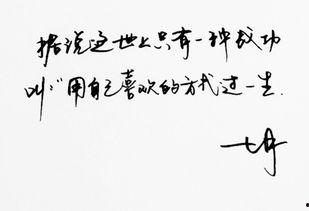 据说这世上只有一种成功
叫"用自己喜欢的方式过一生.
七月